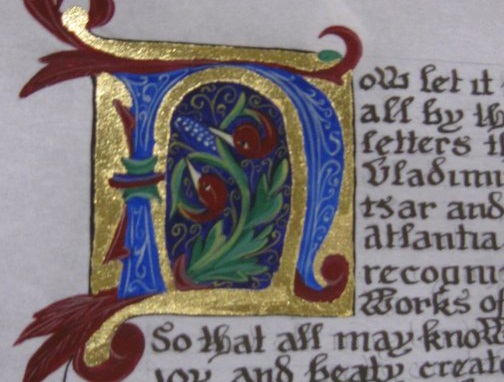 Now let it
all by
letters
Vladimir
tsar and
Atlantia
recogni
Works of
So that all may know
joy and beaty creat